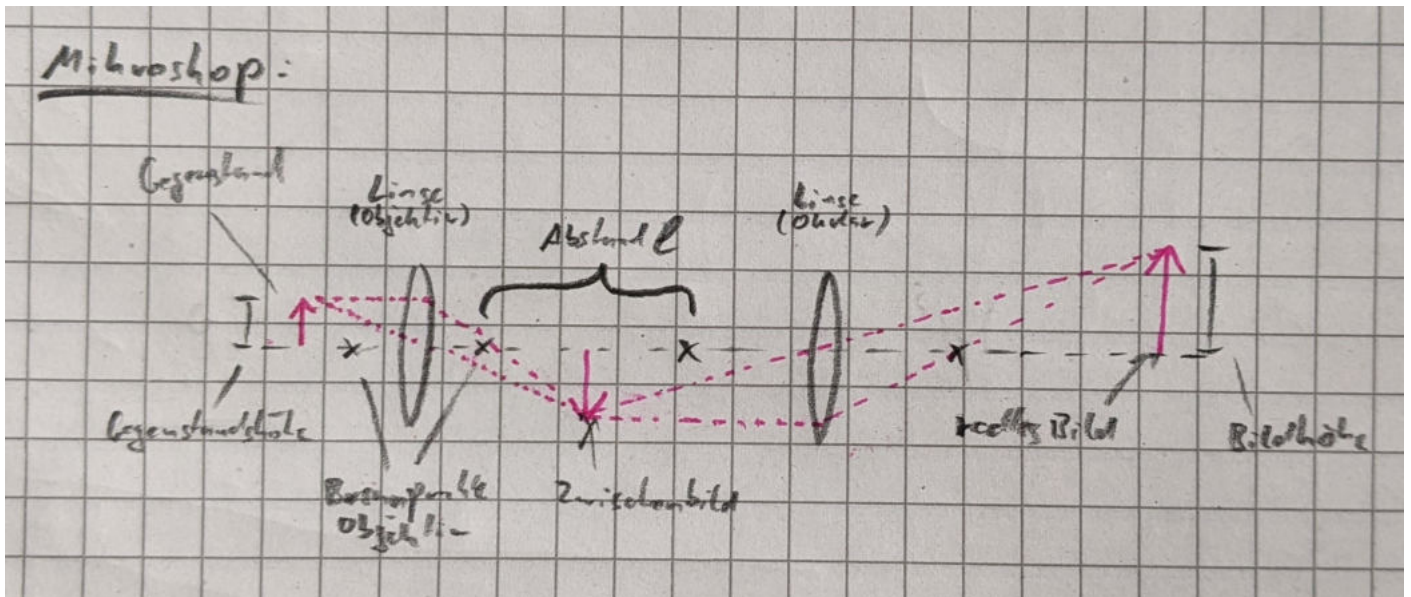 Mikroskop:
Gegenstand
Linse
(Objektiv)
Abstand l
Linse
(Okular)
Gegenstandshöhe
Brennpunkte
Objektiv
Zwischenbild
reelles Bild
Bildhöhe